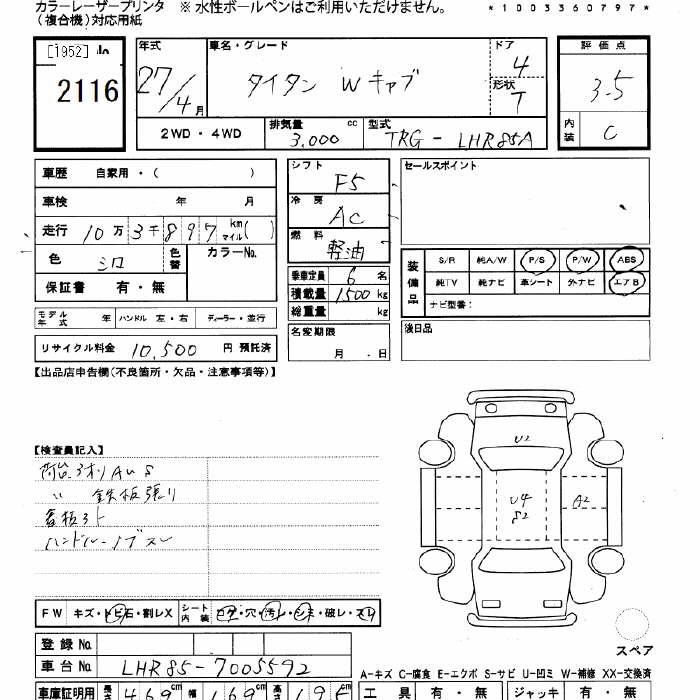 カラーレーザープリンタ ※ 水性ボールペンはご利用いただけません。 *1003360797*
（複合機）対応用紙
[1952]
2116
年式 27/4月
車名・グレード タイタン Wキャブ
ドア 4
形状 T
評価点 3.5
内装 C
2WD・4WD 排気量 3,000 cc 型式 TRG-LHR85A
車歴 自家用・( )
車検 年 月
走行 10万3千897 km マイル( )
色 シロ 色替 カラーNo.
保証書 有・無
シフト F5
冷房 AC
燃料 軽油
乗車定員 6名
積載量 1500kg
総重量 kg
セールスポイント
装備品 S/R 純A/W P/S P/W ABS
純TV 純ナビ 革シート 外ナビ エアB
ナビ型番：
モデル年式 年 ハンドル 左・右 ディーラー・並行
名変期限 月 日
後日品
リサイクル料金 10,500 円 預託済
【出品店申告欄(不良箇所・欠品・注意事項等)】
【検査員記入】
〃 鉄板張り
U2
U4
S2
A2
FW キズ・トビ石・割レX シート内装 コゲ・穴・汚レ・シミ・破レ・スレ
スペア
登録No.
車台No. LHR85-7005592
A-キズ C-腐食 E-エクボ S-サビ U-凹ミ W-補修 XX-交換済
車庫証明用 長さ 469cm 幅 169cm 高さ
工具 有・無 ジャッキ 有・無